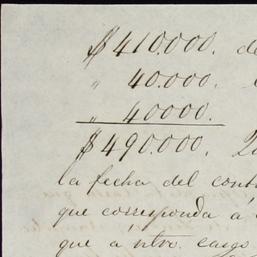 $410.000. de
" 40.000.
" 40000.
$490.000.
la fecha del cont
que corresponda á
que a ntro. cargo